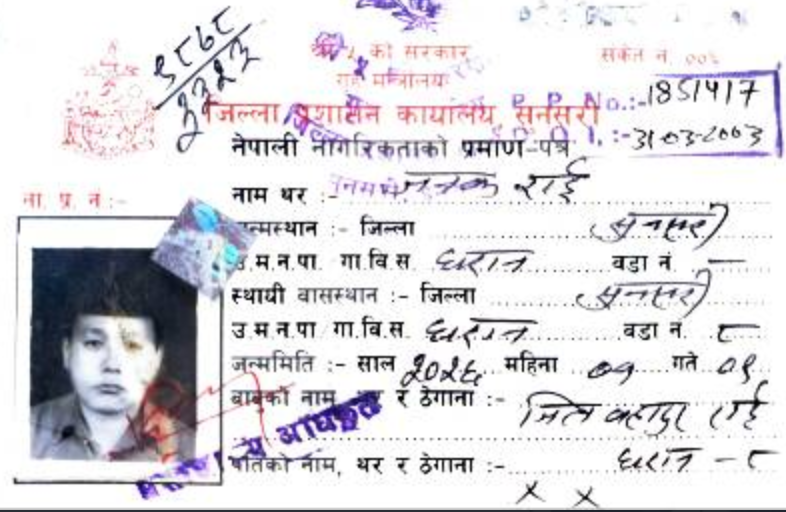 श्री ५ को सरकार
गृह मन्त्रालय
संकेत नं. ००६
९८७८
३३२३
जिल्ला प्रशासन कार्यालय, सुनसरी
P.P.No.:- 1851417
D.O.I.:- 31-03-2003
नेपाली नागरिकताको प्रमाण-पत्र
ना. प्र. नं :-
नाम थर :- जनक राई
जन्मस्थान :- जिल्ला सुनसरी
उ.म.न.पा. गा.वि.स. धरान वडा नं. -
स्थायी वासस्थान :- जिल्ला सुनसरी
उ.म.न.पा गा.वि.स. धरान वडा नं. ८
जन्ममिति :- साल २०२६ महिना ०७ गते ०९
बाबुको नाम, थर र ठेगाना :- जित बहादुर राई
धरान - ८
पतिको नाम, थर र ठेगाना :-
x x